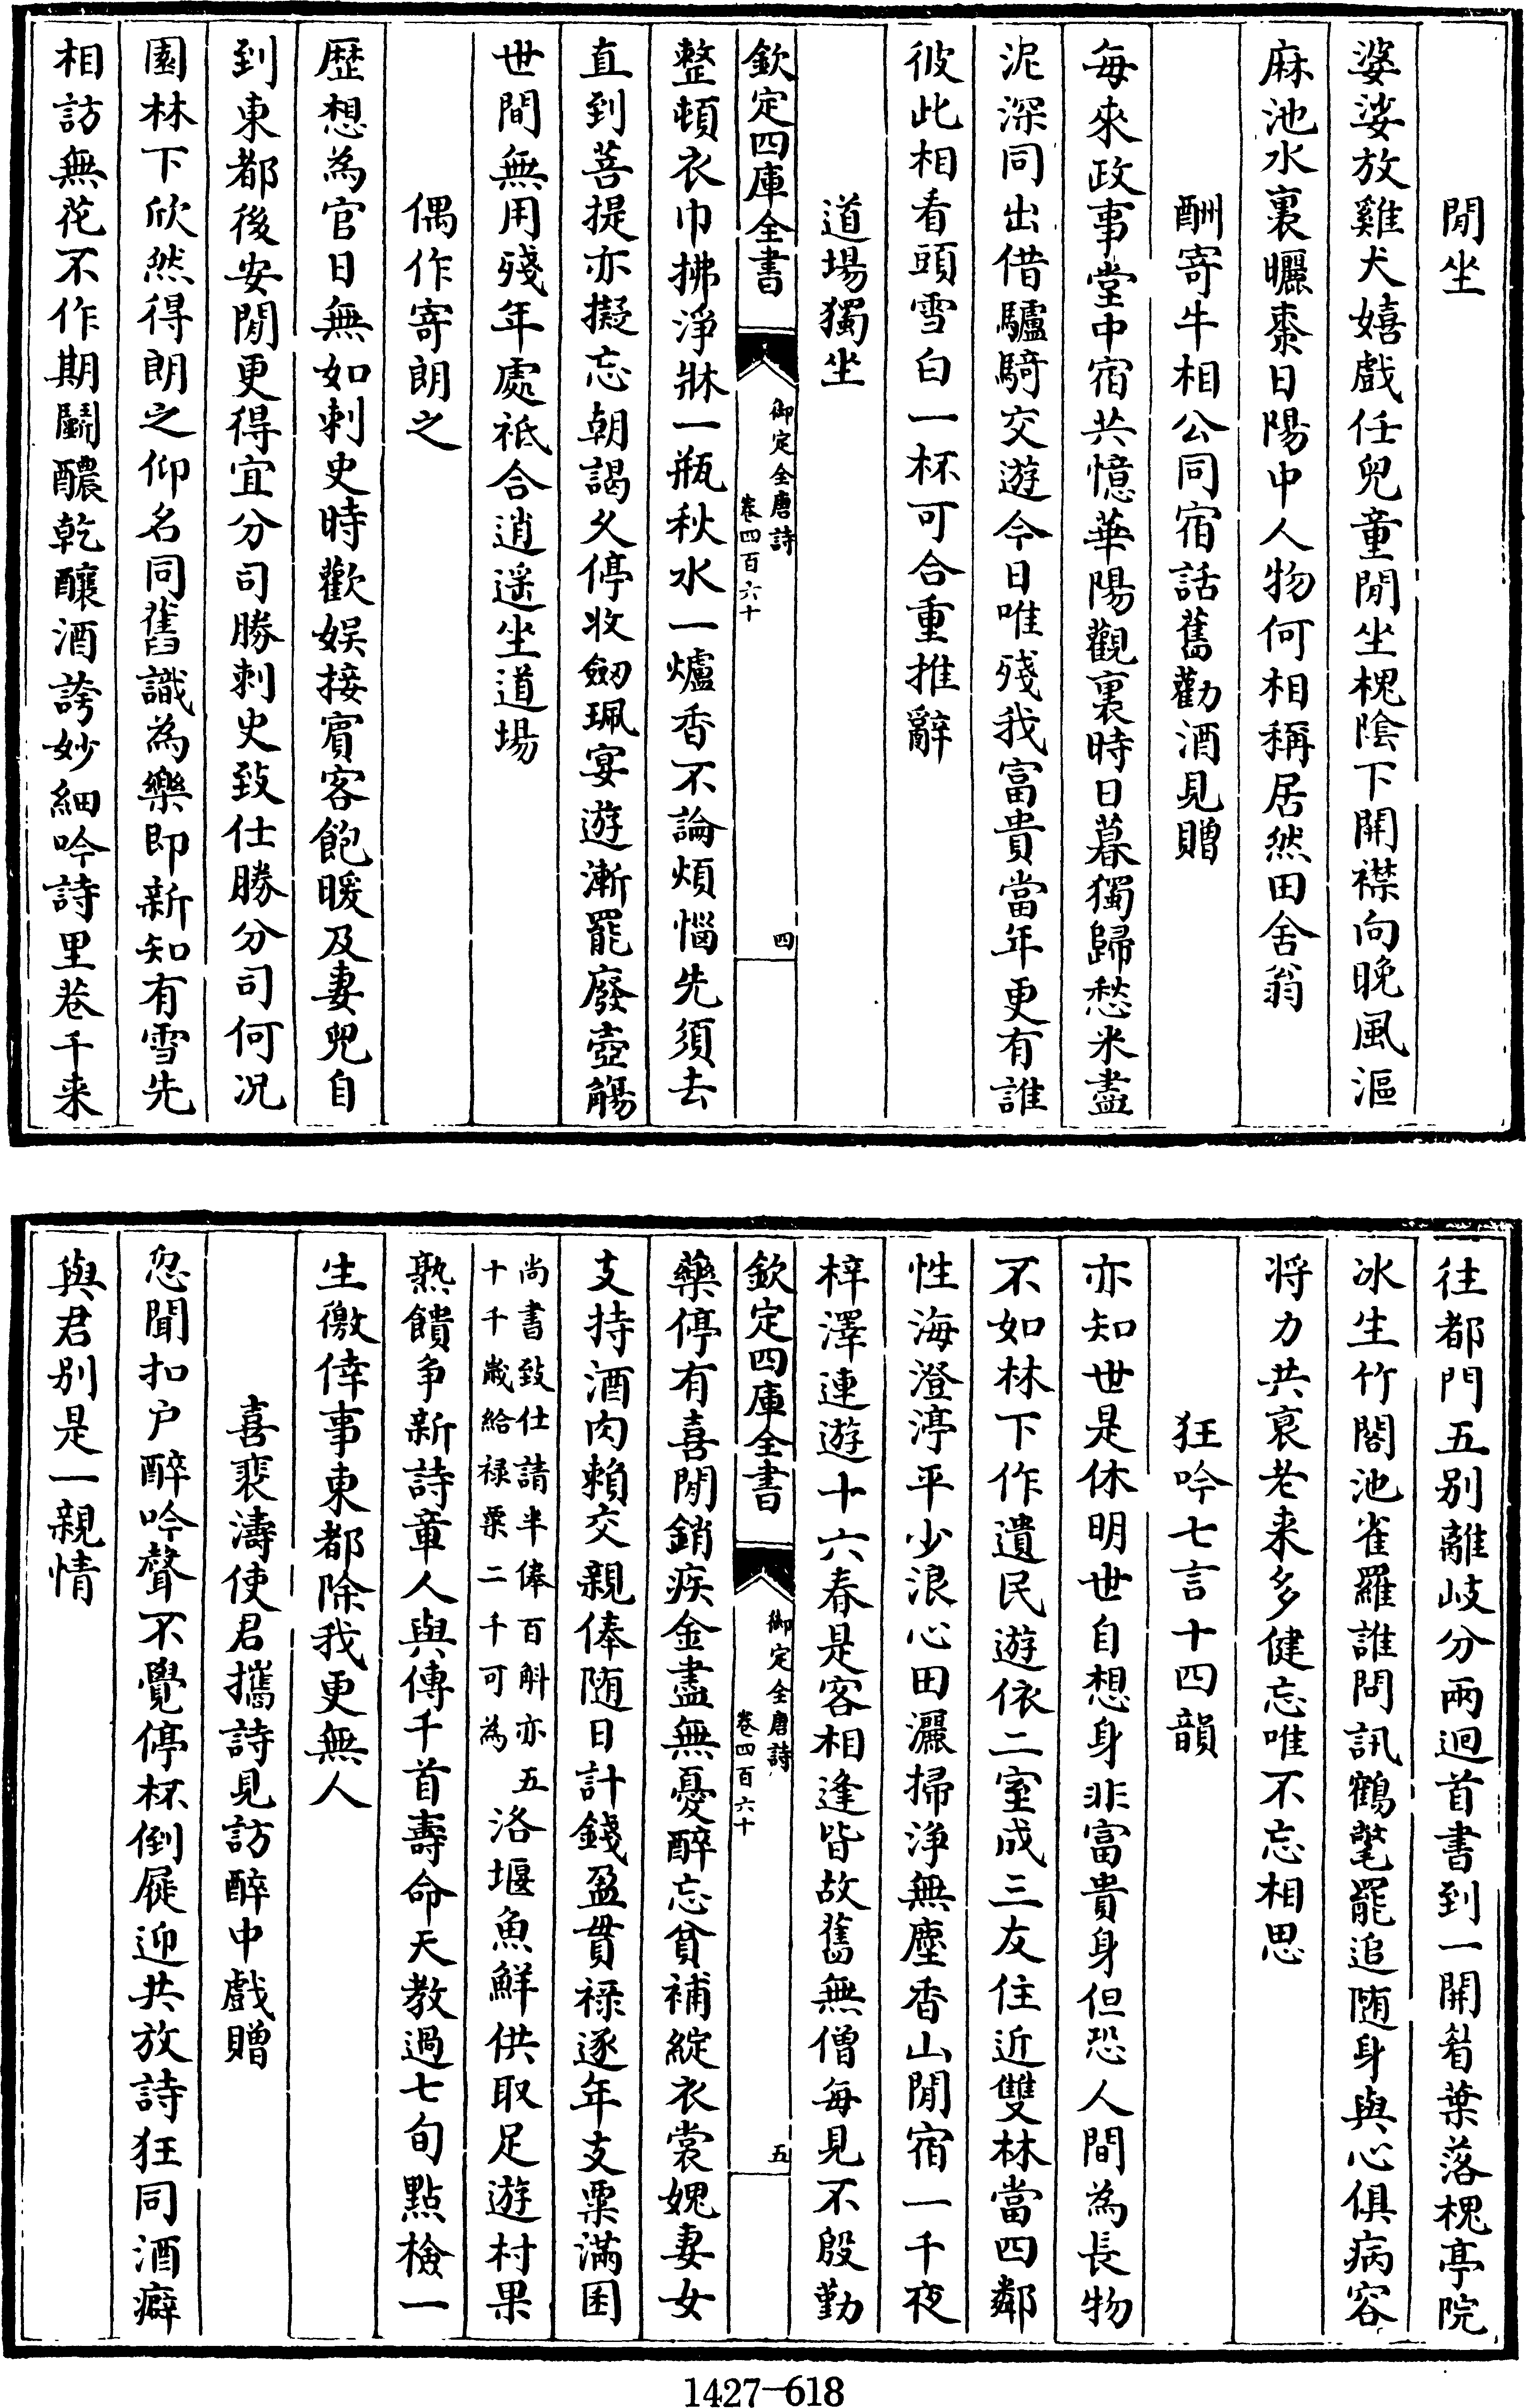 閒坐
婆娑放雞犬嬉戲任兒童閒坐槐陰下開襟向晚風漚
麻池水裏曬棗日陽中人物何相稱居然田舍翁
酬寄牛相公同宿話舊勸酒見贈
每來政事堂中宿共憶華陽觀裏時日暮獨歸愁米盡
泥深同出借驢騎交遊今日唯殘我富貴當年更有誰
彼此相看頭雪白一杯可合重推辭
道場獨坐
欽定四庫全書
御定全唐詩
卷四百六十
四
整頓衣巾拂淨牀一瓶秋水一爐香不論煩惱先須去
直到菩提亦擬忘朝謁久停收劒珮宴遊漸罷廢壺觴
世間無用殘年處祗合逍遥坐道場
偶作寄朗之
歴想為官日無如刺史時歡娱接賓客飽暖及妻兒自
到東都後安閒更得宜分司勝刺史致仕勝分司何况
園林下欣然得朗之仰名同舊識為樂即新知有雪先
相訪無花不作期鬭醲乾釀酒誇妙細吟詩里巷千来
往都門五别離岐分兩迴首書到一開眉葉落槐亭院
冰生竹閣池雀羅誰問訊鶴氅罷追随身與心俱病容
将力共衰老来多健忘唯不忘相思
狂吟七言十四韻
亦知世是休明世自想身非富貴身但恐人間為長物
不如林下作遺民遊依二室成三友住近雙林當四鄰
性海澄渟平少浪心田灑掃淨無塵香山閒宿一千夜
梓澤連遊十六春是客相逢皆故舊無僧每見不殷勤
欽定四庫全書
御定全唐詩
卷四百六十
五
藥停有喜閒銷疾金盡無憂醉忘貧補綻衣裳媿妻女
支持酒肉賴交親俸随日計錢盈貫禄逐年支粟滿囷
尚書致仕請半俸百斛亦五
十千嵗給禄粟二千可為
洛堰魚鮮供取足遊村果
熟饋争新詩章人與傳千首壽命天教過七旬點檢一
生徼倖事東都除我更無人
喜裴濤使君攜詩見訪醉中戲贈
忽聞扣户醉吟聲不覺停杯倒屣迎共放詩狂同酒癖
與君别是一親情
1427-618